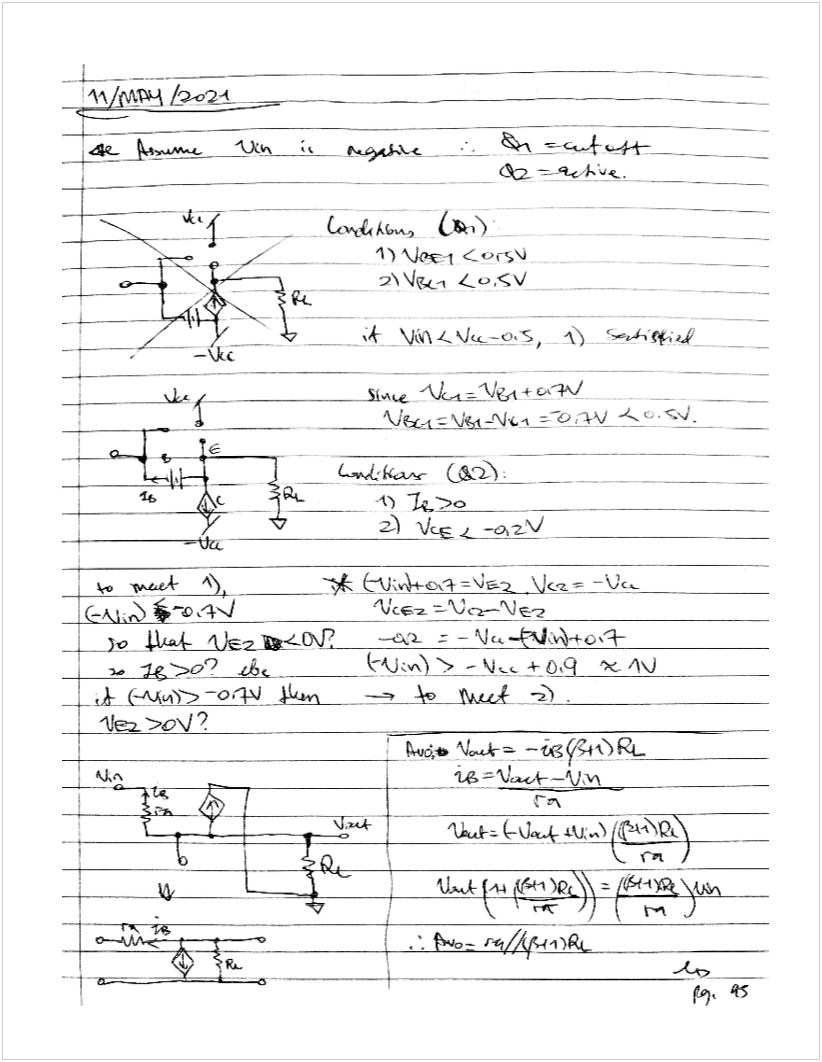 11/MAY/2021
Assume Vin is negative ∴ Q1 = cutoff
Q2 = active.
Conditions (Q1):
1) VBE1 < 0.5V
2) VBC1 < 0.5V
Vcc
RL
-Vcc
if Vin < Vcc - 0.5, 1) satisfied
since VC1 = VB1 + 0.7V
VBC1 = VB1 - VC1 = -0.7V < 0.5V.
Vcc
E
B
IB
C
RL
-Vcc
Conditions (Q2):
1) IB > 0
2) VCE < -0.2V
to meet 1),
(-Vin) -0.7V
so that VE2 < 0V?
so IB > 0? else
if (-Vin) > -0.7V then
VE2 > 0V?
* (-Vin) + 0.7 = VE2. VC2 = -Vcc
VCE2 = VC2 - VE2
-0.2 = -Vcc - (-Vin) + 0.7
(-Vin) > -Vcc + 0.9 ≈ 1V
→ to meet 2).
Vin
iB
rπ
Vout
RL
rπ iB
RL
Avo: Vout = -iB(β+1)RL
iB = Vout - Vin / rπ
Vout = (-Vout + Vin) ((β+1)RL / rπ)
Vout (1 + ((β+1)RL / rπ)) = ((β+1)RL / rπ) Vin
∴ Avo = rπ//(β+1)RL
↳
pg. 95